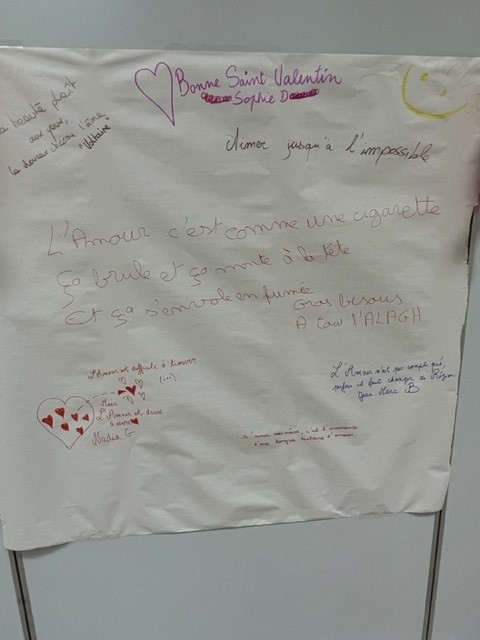 Bonne Saint Valentin
Sophie D
la beauté plait
aux yeux,
la douceur charme l'âme
"Voltaire
Aimer jusqu'à l'impossible
L'Amour c'est comme une cigarette
ça brule et ça monte à la tête
Et ça s'envole en fumée
Gros bisous
A tous l'ALAGH
L'Amour est difficile à trouver
(...)
Mais
L'Amour est doux
à vivre
Nadia G
L'Amour n'est pas compliqué
parfois il faut changer de Région
Jean-Marc B